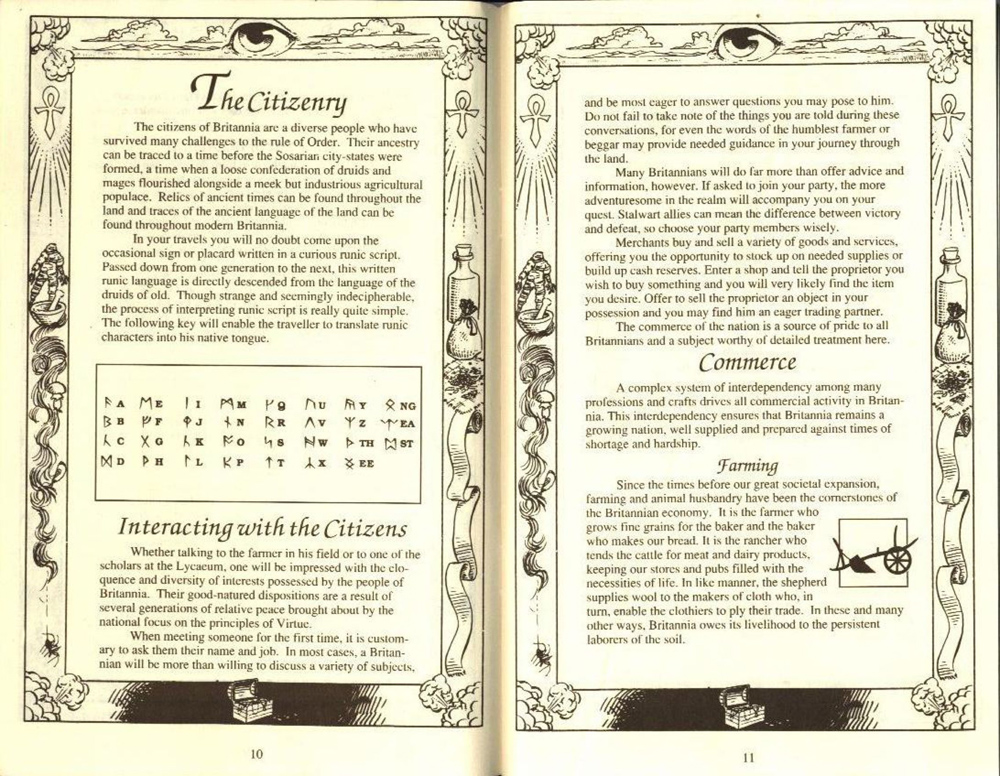 The Citizenry
The citizens of Britannia are a diverse people who have
survived many challenges to the rule of Order. Their ancestry
can be traced to a time before the Sosarian city-states were
formed, a time when a loose confederation of druids and
mages flourished alongside a meek but industrious agricultural
populace. Relics of ancient times can be found throughout the
land and traces of the ancient language of the land can be
found throughout modern Britannia.
In your travels you will no doubt come upon the
occasional sign or placard written in a curious runic script.
Passed down from one generation to the next, this written
runic language is directly descended from the language of the
druids of old. Though strange and seemingly indecipherable,
the process of interpreting runic script is really quite simple.
The following key will enable the traveller to translate runic
characters into his native tongue.
A E I M Q U Y NG
B F J N R V Z EA
C G K O S W TH ST
D H L P T X EE
Interacting with the Citizens
Whether talking to the farmer in his field or to one of the
scholars at the Lycaeum, one will be impressed with the elo-
quence and diversity of interests possessed by the people of
Britannia. Their good-natured dispositions are a result of
several generations of relative peace brought about by the
national focus on the principles of Virtue.
When meeting someone for the first time, it is custom-
ary to ask them their name and job. In most cases, a Britan-
nian will be more than willing to discuss a variety of subjects,
10
and be most eager to answer questions you may pose to him.
Do not fail to take note of the things you are told during these
conversations, for even the words of the humblest farmer or
beggar may provide needed guidance in your journey through
the land.
Many Britannians will do far more than offer advice and
information, however. If asked to join your party, the more
adventuresome in the realm will accompany you on your
quest. Stalwart allies can mean the difference between victory
and defeat, so choose your party members wisely.
Merchants buy and sell a variety of goods and services,
offering you the opportunity to stock up on needed supplies or
build up cash reserves. Enter a shop and tell the proprietor you
wish to buy something and you will very likely find the item
you desire. Offer to sell the proprietor an object in your
possession and you may find him an eager trading partner.
The commerce of the nation is a source of pride to all
Britannians and a subject worthy of detailed treatment here.
Commerce
A complex system of interdependency among many
professions and crafts drives all commercial activity in Britan-
nia. This interdependency ensures that Britannia remains a
growing nation, well supplied and prepared against times of
shortage and hardship.
Farming
Since the times before our great societal expansion,
farming and animal husbandry have been the cornerstones of
the Britannian economy. It is the farmer who
grows fine grains for the baker and the baker
who makes our bread. It is the rancher who
tends the cattle for meat and dairy products,
keeping our stores and pubs filled with the
necessities of life. In like manner, the shepherd
supplies wool to the makers of cloth who, in
turn, enable the clothiers to ply their trade. In these and many
other ways, Britannia owes its livelihood to the persistent
laborers of the soil.
11